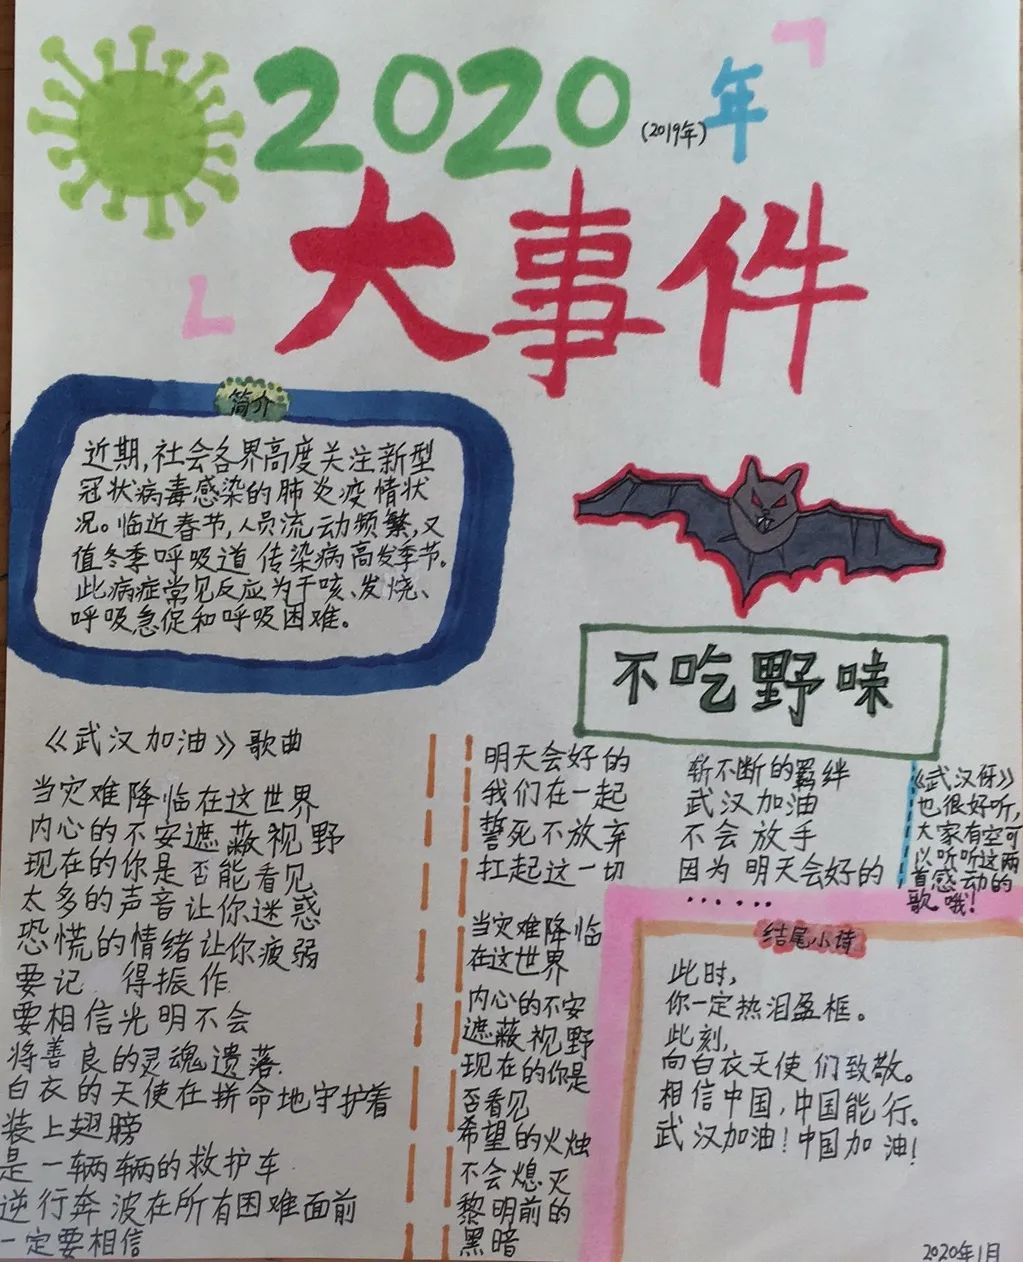 2020年
(2019年)
大事件
简介
近期,社会各界高度关注新型
冠状病毒感染的肺炎疫情状
况。临近春节,人员流动频繁,又
值冬季呼吸道传染病高发季节。
此病症常见反应为干咳、发烧、
呼吸急促和呼吸困难。
不吃野味
《武汉加油》歌曲
当灾难降临在这世界
内心的不安遮蔽视野
现在的你是否能看见
太多的声音让你迷惑
恐慌的情绪让你疲弱
要记 得振作
要相信光明不会
将善良的灵魂遗落
白衣的天使在拼命地守护着
装上翅膀
是一辆辆的救护车
逆行奔波在所有困难面前
一定要相信
明天会好的
我们在一起
誓死不放弃
扛起这一切
当灾难降临
在这世界
内心的不安
遮蔽视野
现在的你是
否看见
希望的火烛
不会熄灭
黎明前的
黑暗
斩不断的羁绊
武汉加油
不会放手
因为明天会好的
……
《武汉伢》
也很好听,
大家有空可
以听听这两
首感动的
歌哦!
结尾小诗
此时,
你一定热泪盈框。
此刻,
向白衣天使们致敬。
相信中国,中国能行。
武汉加油!中国加油!
2020年1月